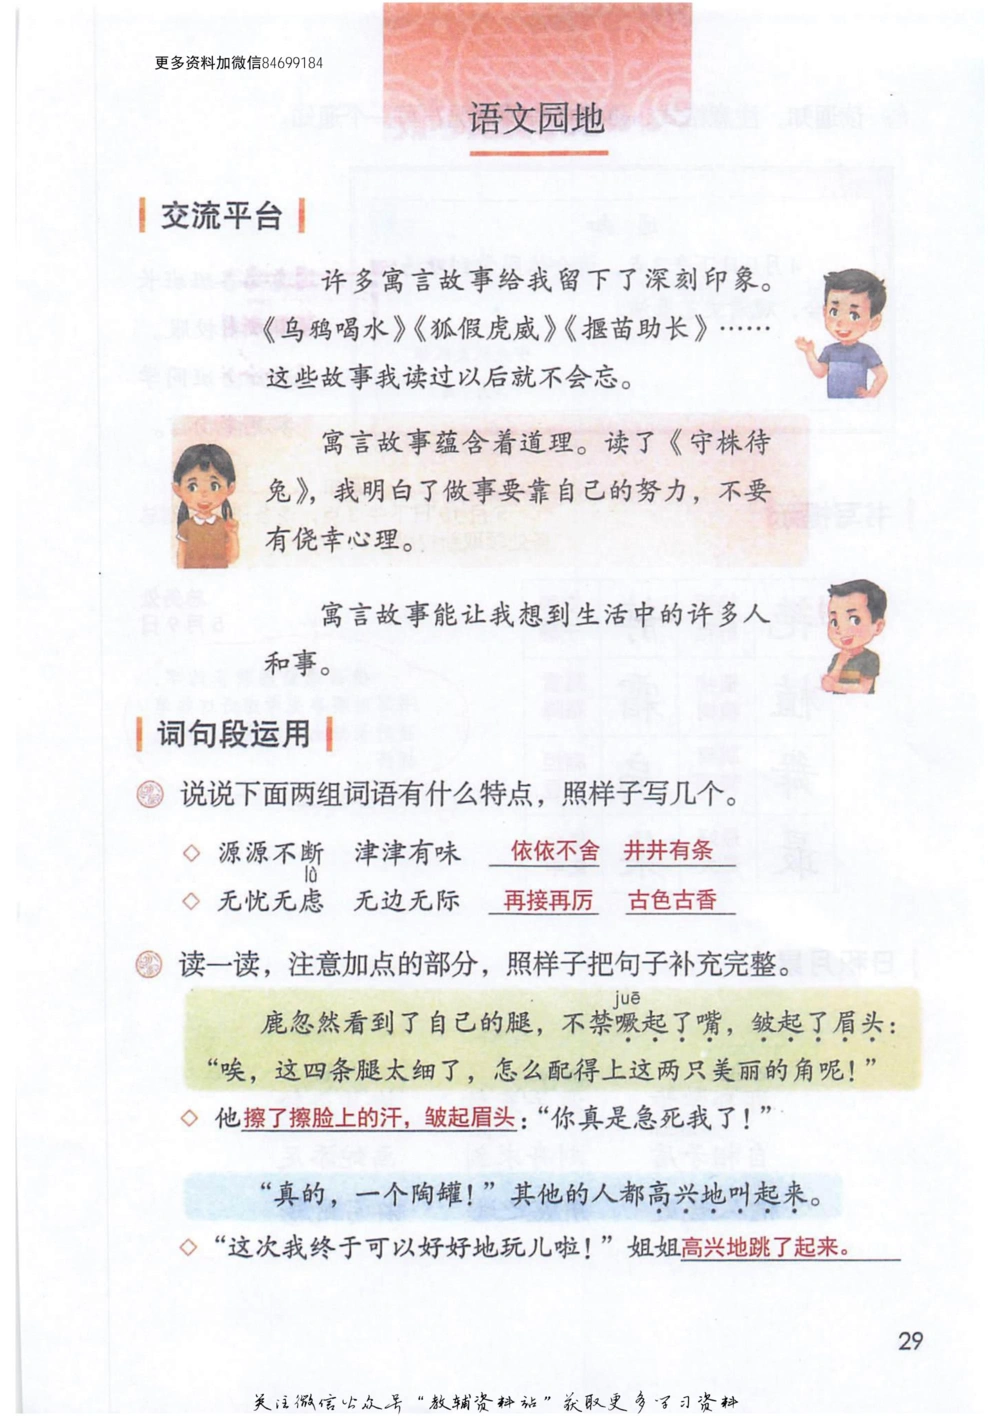 更多资料加微信84699184
语文园地
交流平台
许多寓言故事给我留下了深刻印象。
《乌鸦喝水》《狐假虎威》《揠苗助长》……
这些故事我读过以后就不会忘。
寓言故事蕴含着道理。读了《守株待
兔》，我明白了做事要靠自己的努力，不要
有侥幸心理。
寓言故事能让我想到生活中的许多人
和事。
词句段运用
说说下面两组词语有什么特点，照样子写几个。
◇ 源源不断 津津有味 依依不舍 井井有条
lǜ
◇ 无忧无虑 无边无际 再接再厉 古色古香
读一读，注意加点的部分，照样子把句子补充完整。
juē
鹿忽然看到了自己的腿，不禁噘起了嘴，皱起了眉头：
“唉，这四条腿太细了，怎么配得上这两只美丽的角呢！”
◇ 他擦了擦脸上的汗，皱起眉头：“你真是急死我了！”
“真的，一个陶罐！”其他的人都高兴地叫起来。
◇ “这次我终于可以好好地玩儿啦！”姐姐高兴地跳了起来。
29
关注微信公众号“教辅资料站”获取更多学习资料